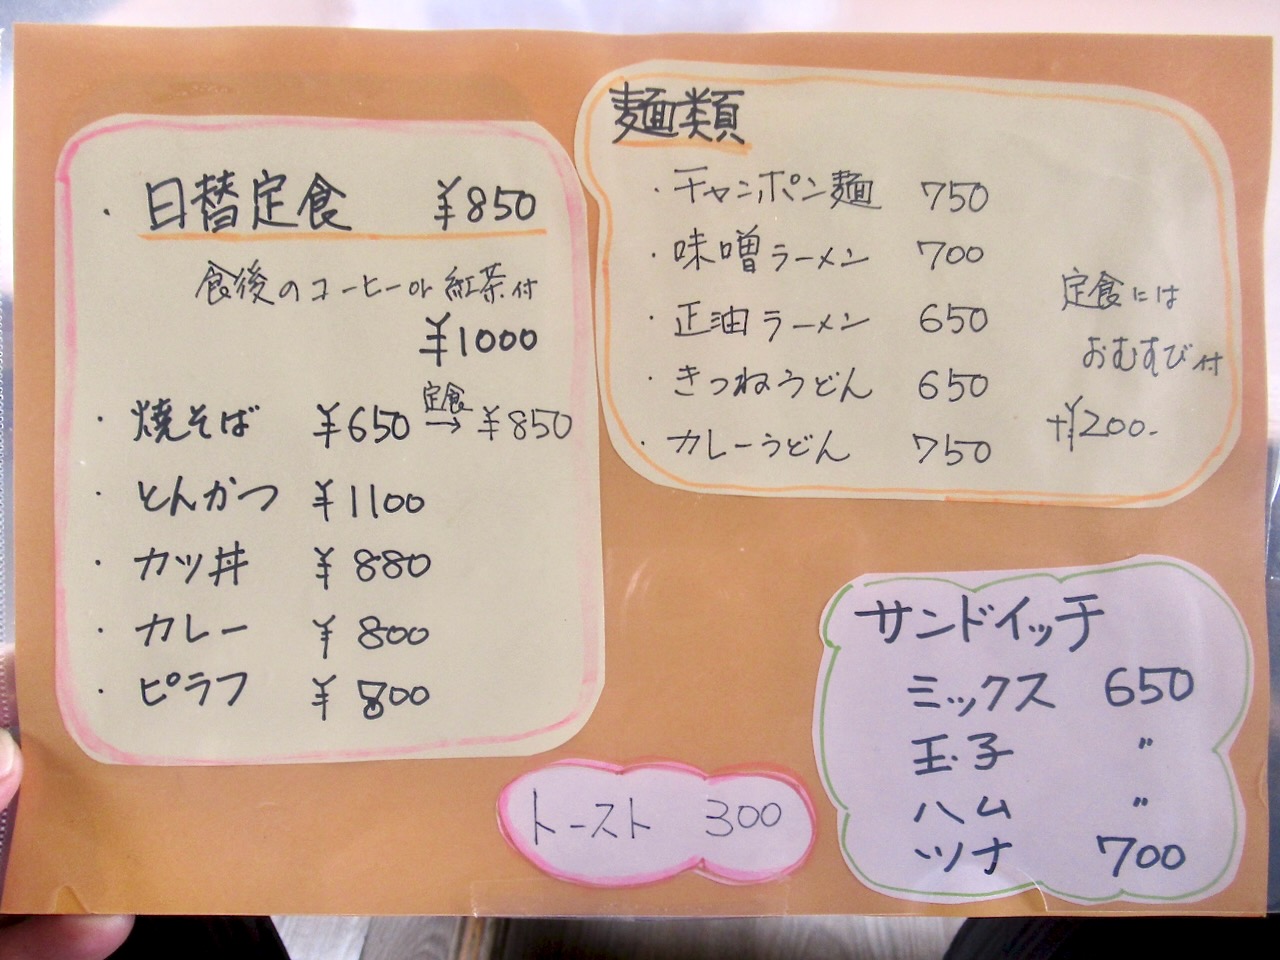 ・日替定食 ¥850
食後のコーヒーor紅茶付
¥1000
・焼そば ¥650 定食→ ¥850
・とんかつ ¥1100
・カツ丼 ¥880
・カレー ¥800
・ピラフ ¥800
麺類
・チャンポン麺 750
・味噌ラーメン 700
・正油ラーメン 650
・きつねうどん 650
・カレーうどん 750
定食には
おむすび付
+¥200-
サンドイッチ
ミックス 650
玉子 〃
ハム 〃
ツナ 700
トースト 300